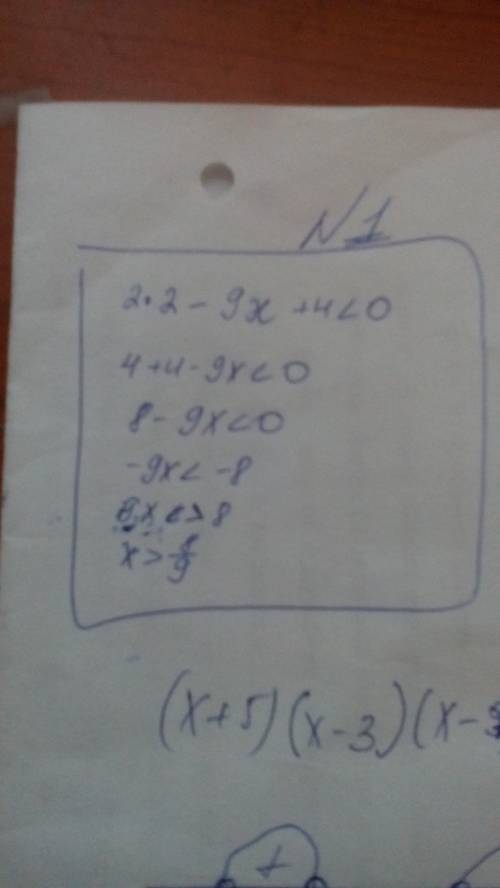 N1
2·2 - 9x + 4 < 0
4 + 4 - 9x < 0
8 - 9x < 0
-9x < - 8
x > 8
x > 8/9
(x+5)(x-3)(x-
+